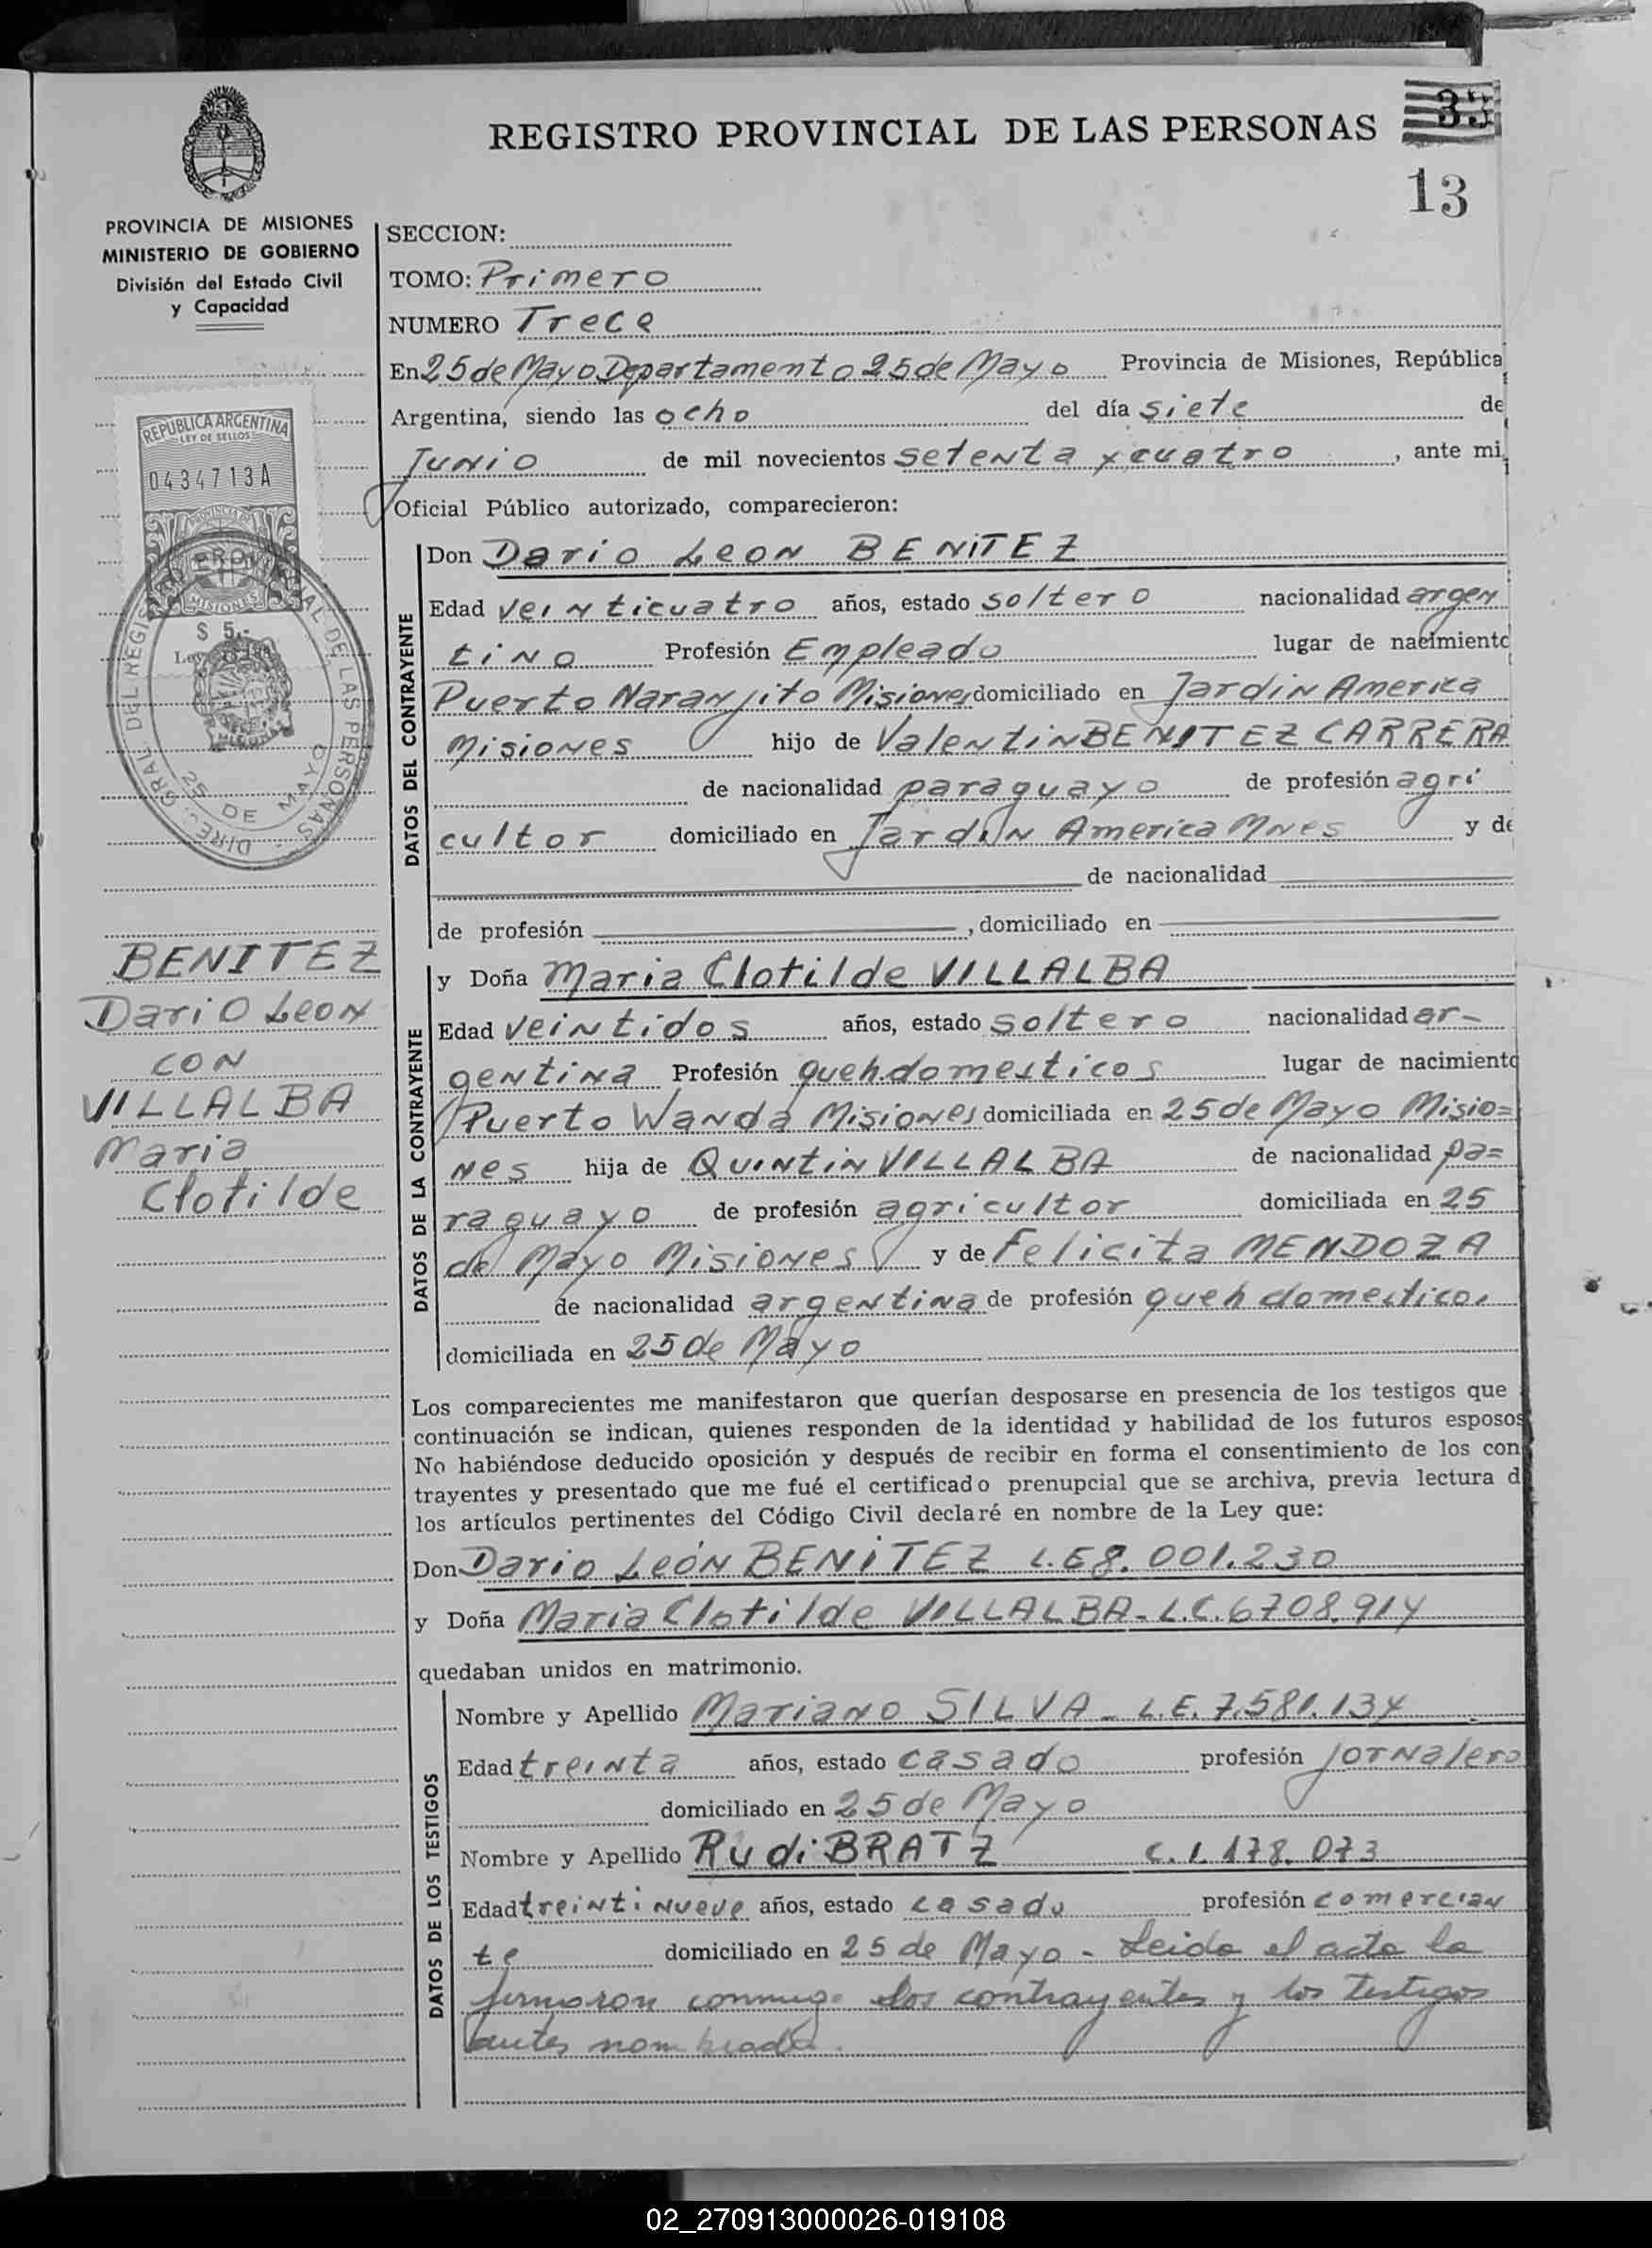 REGISTRO PROVINCIAL DE LAS PERSONAS
33
13
PROVINCIA DE MISIONES
MINISTERIO DE GOBIERNO
División del Estado Civil
y Capacidad
SECCION:
TOMO: Primero
NUMERO Trece
En 25 de Mayo Departamento 25 de Mayo Provincia de Misiones, República
Argentina, siendo las ocho del día siete de
Junio de mil novecientos setenta y cuatro, ante mi
Oficial Público autorizado, comparecieron:
REPUBLICA ARGENTINA
LEY DE SELLOS
0434713A
PROVINCIA DE
MISIONES
$ 5,-
DIREC. GRAL. DEL REGIST. PROVINCIAL DE LAS PERSONAS
25 DE MAYO
BENITEZ
Dario Leon
CON
VILLALBA
Maria
Clotilde
DATOS DEL CONTRAYENTE
Don Dario Leon BENITEZ
Edad veinticuatro años, estado soltero nacionalidad argen
tino Profesión Empleado lugar de nacimiento
Puerto Naranjito Misiones domiciliado en Jardin America
Misiones hijo de Valentin BENITEZ CARRERA
de nacionalidad paraguayo de profesión agri
cultor domiciliado en Jardin America Mnes y de
de nacionalidad
de profesión , domiciliado en
DATOS DE LA CONTRAYENTE
y Doña Maria Clotilde VILLALBA
Edad veintidos años, estado soltero nacionalidad ar-
gentina Profesión queh.domesticos lugar de nacimiento
Puerto Wanda Misiones domiciliada en 25 de Mayo Misio=
nes hija de Quintin VILLALBA de nacionalidad pa=
raguayo de profesión agricultor domiciliada en 25
de Mayo Misiones y de Felicita MENDOZA
de nacionalidad argentina de profesión queh domesticos
domiciliada en 25 de Mayo
Los comparecientes me manifestaron que querían desposarse en presencia de los testigos que
continuación se indican, quienes responden de la identidad y habilidad de los futuros esposos
No habiéndose deducido oposición y después de recibir en forma el consentimiento de los con
trayentes y presentado que me fué el certificado prenupcial que se archiva, previa lectura d
los artículos pertinentes del Código Civil declaré en nombre de la Ley que:
Don Dario León BENITEZ L.E 8.001.230
y Doña Maria Clotilde VILLALBA - L.C. 6708.914
quedaban unidos en matrimonio.
DATOS DE LOS TESTIGOS
Nombre y Apellido Mariano SILVA - L.E. 7.581.134
Edad treinta años, estado casado profesión jornalero
domiciliado en 25 de Mayo
Nombre y Apellido Rudi BRATZ C.I. 178.073
Edad treintinueve años, estado casado profesión comercian
te domiciliado en 25 de Mayo - Leida el acta la
firmaron conmigo los contrayentes y los testigos
antes nombrados.
02_270913000026-019108